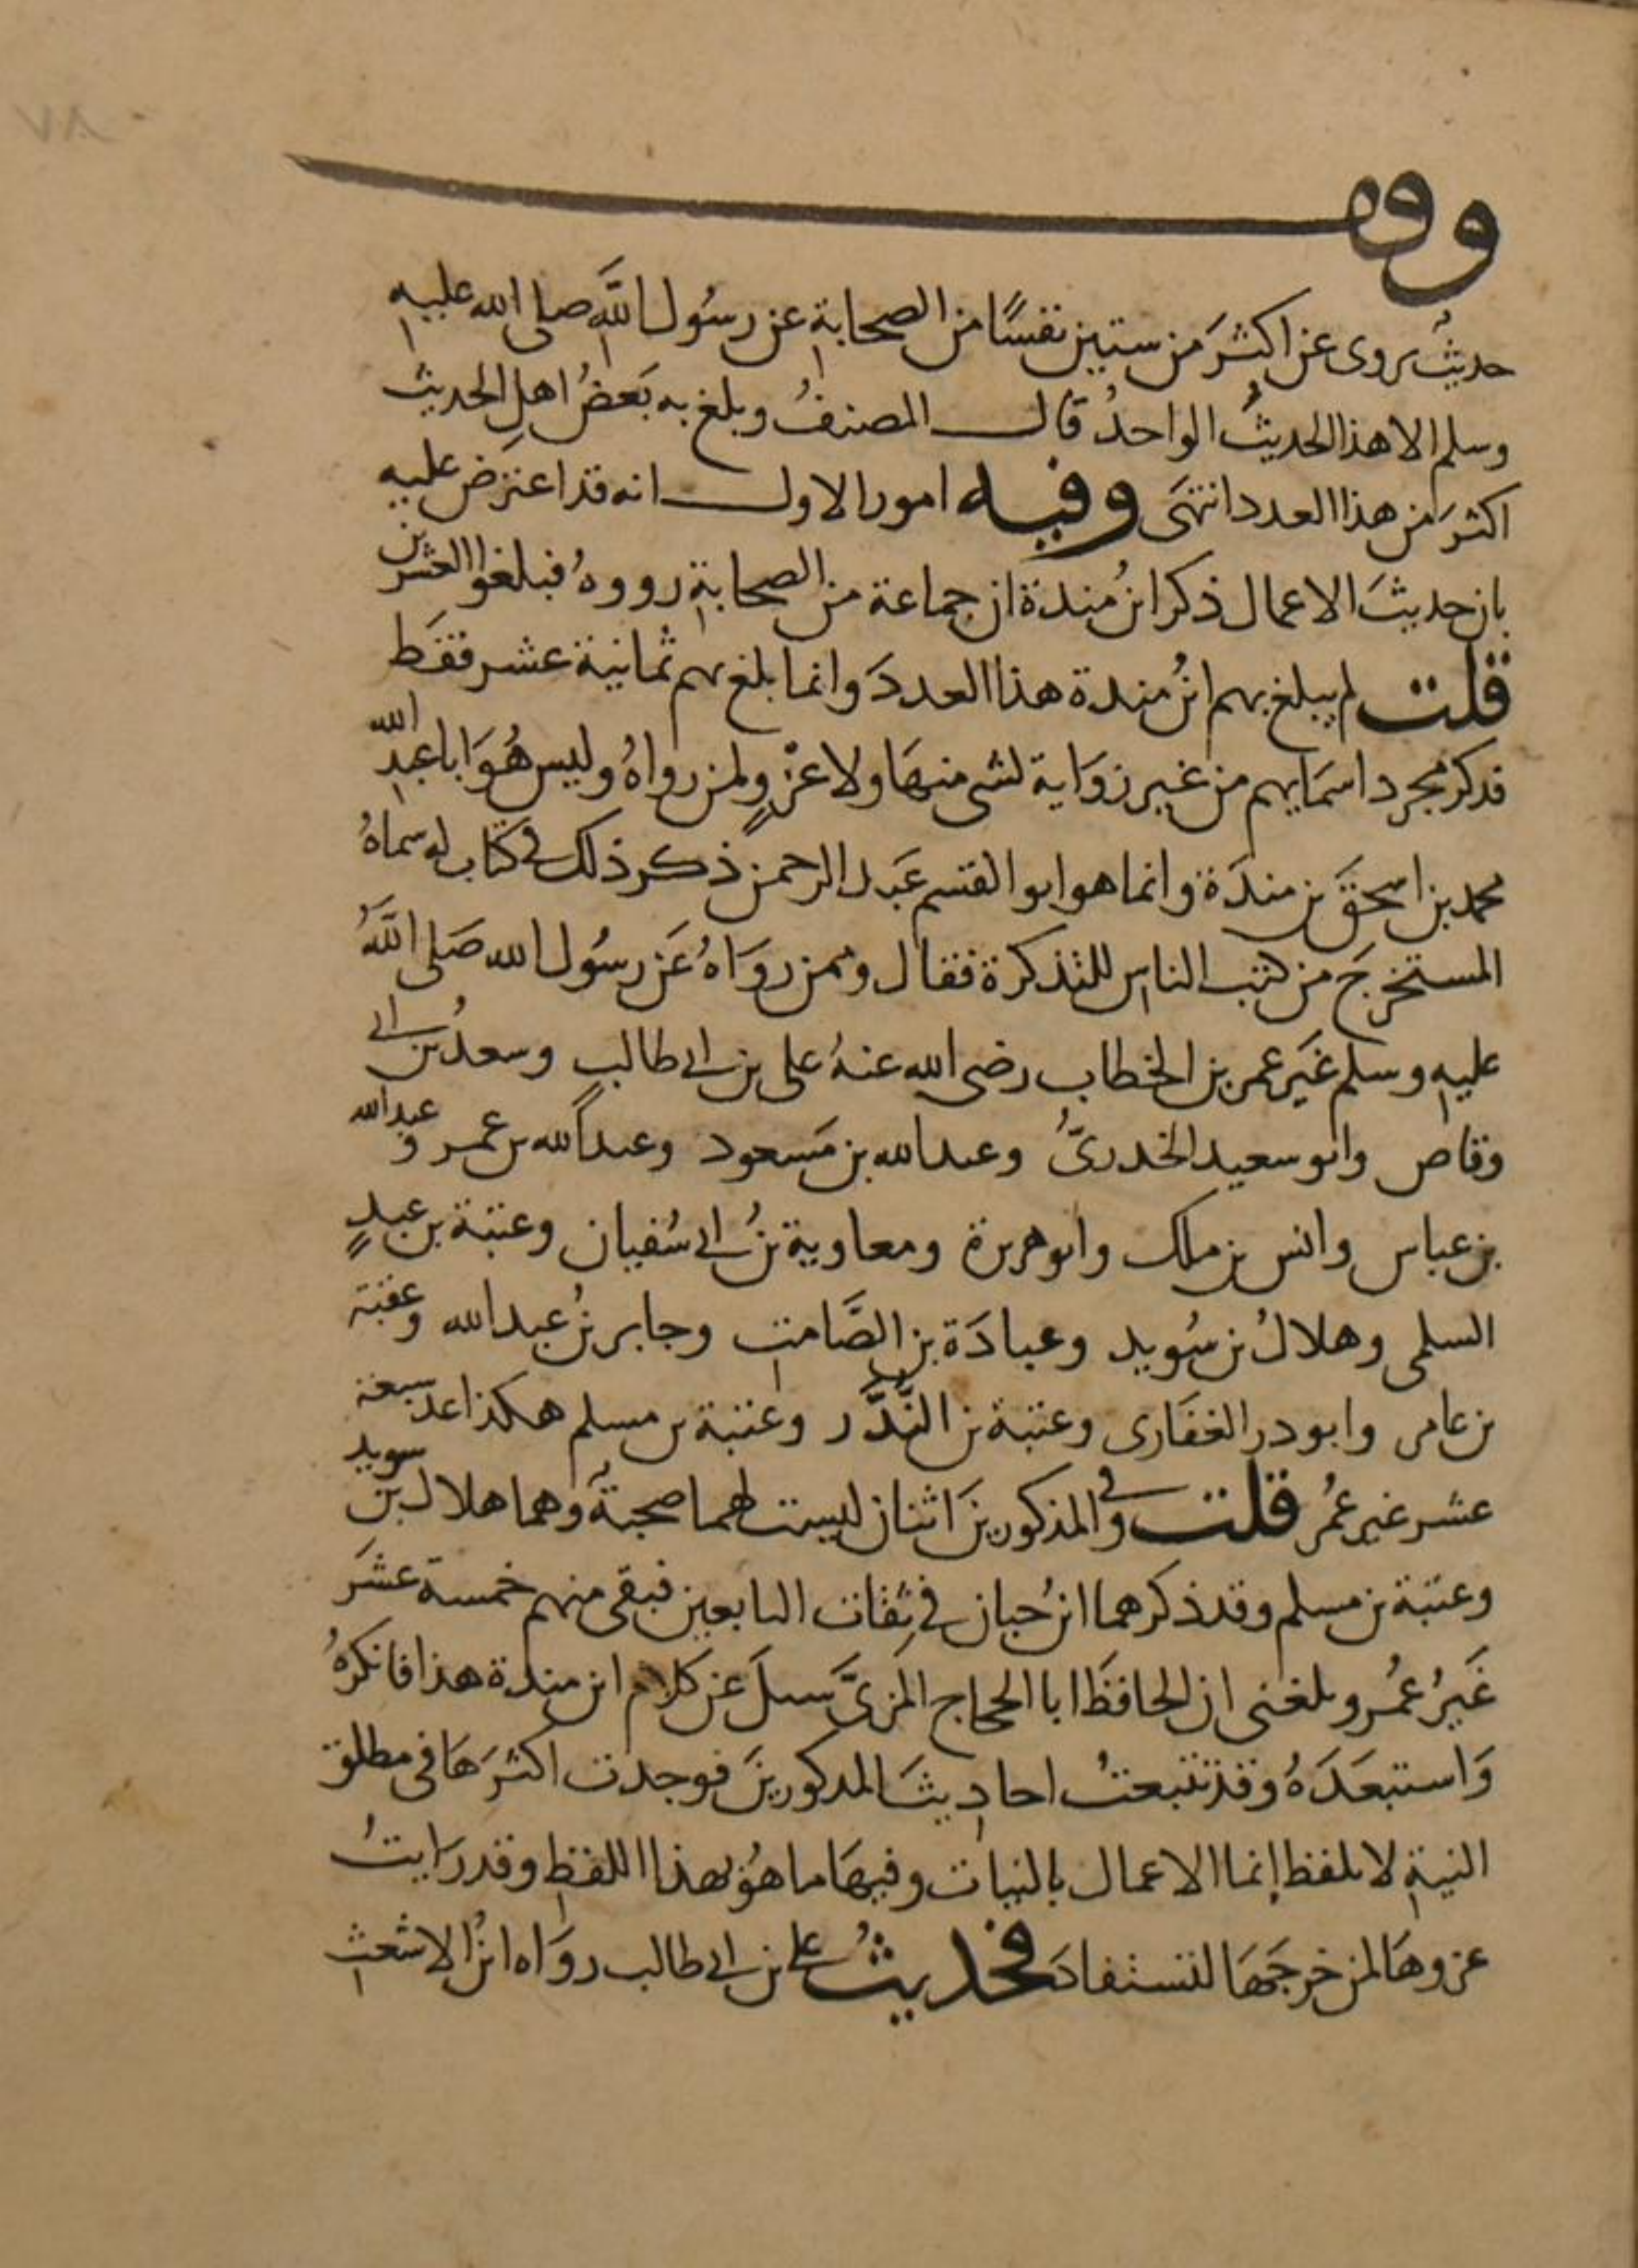 وقف
حديثٌ يروى عن اكثرَ من ستين نفسًا من الصحابةِ عن رسُول اللَّهِ صلى الله عليهِ
وسلم الا هذا الحديثُ الواحدُ قال المصنفُ وبلغ به بَعضُ اهلِ الحديث
اكثرَ من هذا العدد انتهَى وفيه امور الاول انه قد اعترض عليه
بان حديثَ الاعمال ذكر ابنُ مندة ان جماعة من الصحابةِ رووهُ فبلغوا العشرين
قلت لم يبلغ بهم ابنُ مندة هذا العددَ وانما بلغ بهم ثمانية عشر فقط
فذكر مجرد اسمَايهم من غير روَاية لشى منهَا ولا عزْوٍ لمن رواهُ وليس هُوَ ابا عبدِ الله
محمد بن اسحقَ بن مندَة وانما هو ابو القسم عَبد الرحمن ذكر ذلك فى كتاب له سماهُ
المستخرجَ من كتب الناس للتذكرة فقال وممن روَاهُ عَن رسُول الله صَلى اللَّهُ
عليهِ وسلم غَير عمر بن الخطاب رضى الله عنهُ على بن ابى طالب وسعدُ بن ابى
وقاص وابو سعيد الخدرىُّ وعبد الله بن مَسعود وعبد الله بن عمر وعبد الله
بن عباس وانس بن ملك وابو هريرة ومعاوية بنُ ابى سُفيان وعتبة بن عبدٍ
السلمى وهلالُ بن سُويد وعبادَة بن الصَّامت وجابر بنُ عبد الله وعقبة
بن عامر وابو در الغفَارى وعتبة بن النُّدَّر وعتبة بن مسلم هكذا عد سبعة
عشر غير عمُر قلت وفى المذكورينَ اثنان ليست لهما صحبةٌ وهما هلال بن سويد
وعتبة بن مسلم وقد ذكرهما ابنُ حبان فى ثِقات التابعين فبقى منهم خمسة عشَر
غَيرُ عمُر وبلغنى ان الحافظَ ابا الحجاج المزىَّ سيلَ عن كلام ابن مندة هذا فانكرهُ
وَاستبعَدَهُ وقد تتبعتُ احاديثَ المدكورينَ فوجدت اكثرَهَا فى مطلق
النيةِ لا بلفظ إنما الاعمال بالنيات وفيهَا ما هوَ بهذا اللفظِ وقد رَايتُ
عزوهَا لمن خرجَهَا لتستفادَ فحديثُ على بن ابى طالب روَاه ابنُ الاشعث